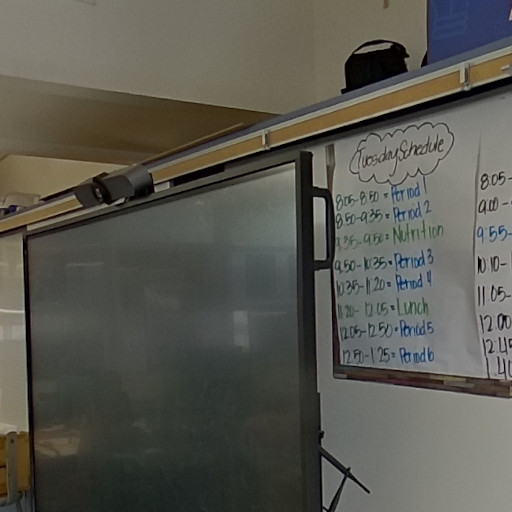 Tuesday Schedule
8:05-8:50 = Period 1
8:50-9:35 = Period 2
9:35-9:50 = Nutrition
9:50-10:35 = Period 3
10:35-11:20 = Period 4
11:20-12:05 = Lunch
12:05-12:50 = Period 5
12:50-1:25 = Period 6
8:05-
9:00-
9:55-
10:10-
11:05-
12:00
12:45
1:40